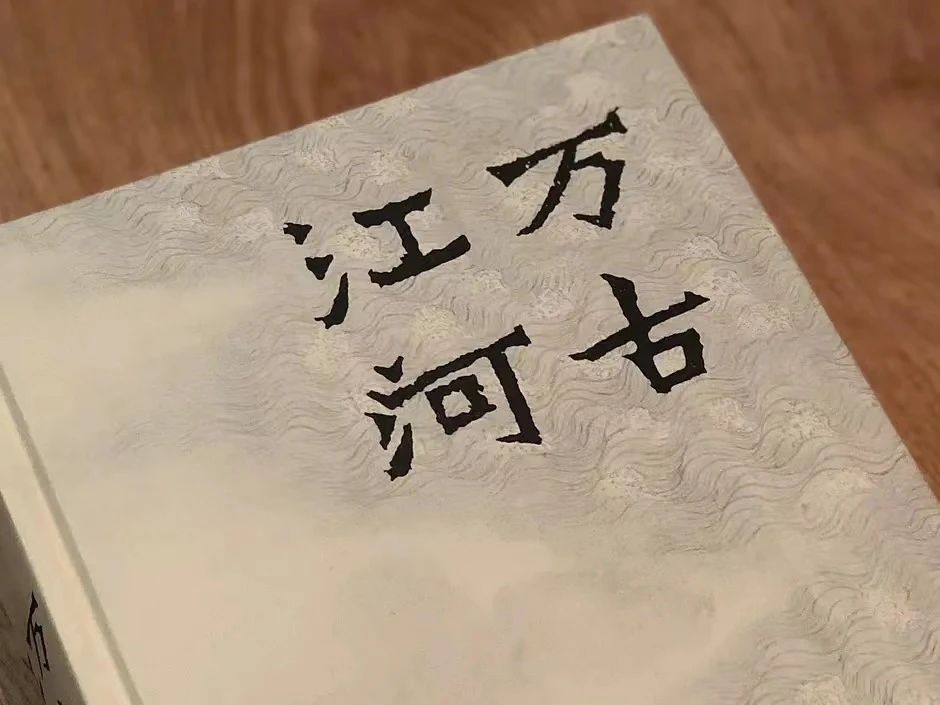 万古
江河
万